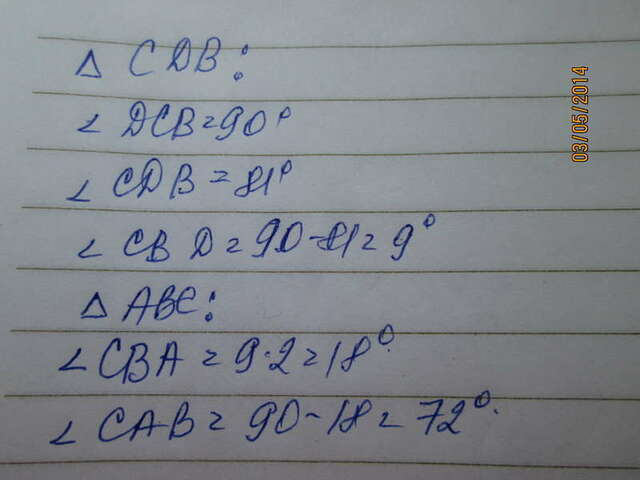 Δ CDB:
∠ DCB = 90°
∠ CDB = 81°
∠ CBD = 90 - 81 = 9°
Δ ABC:
∠ CBA = 9·2 = 18°.
∠ CAB = 90 - 18 = 72°.
03/05/2014